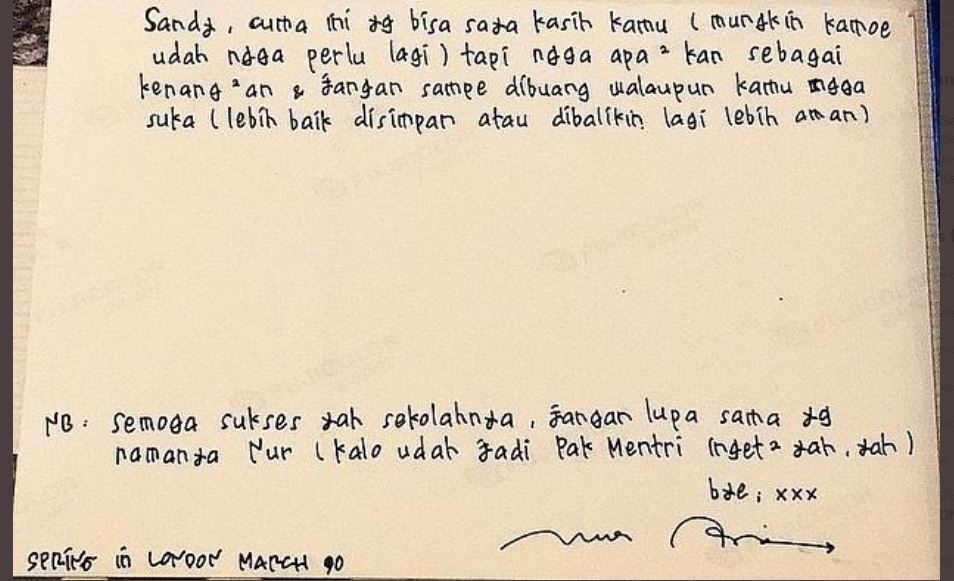 Sandy, cuma ini yg bisa saya kasih kamu (mungkin kamoe
udah ngga perlu lagi) tapi ngga apa² kan sebagai
kenang²an & jangan sampe dibuang walaupun kamu ngga
suka (lebih baik disimpan atau dibalikin lagi lebih aman)
NB: semoga sukses yah sekolahnya, jangan lupa sama yg
namanya Nur (kalo udah jadi Pak Mentri inget² yah, yah)
bye; xxx
SPRING in LONDON MARCH 90